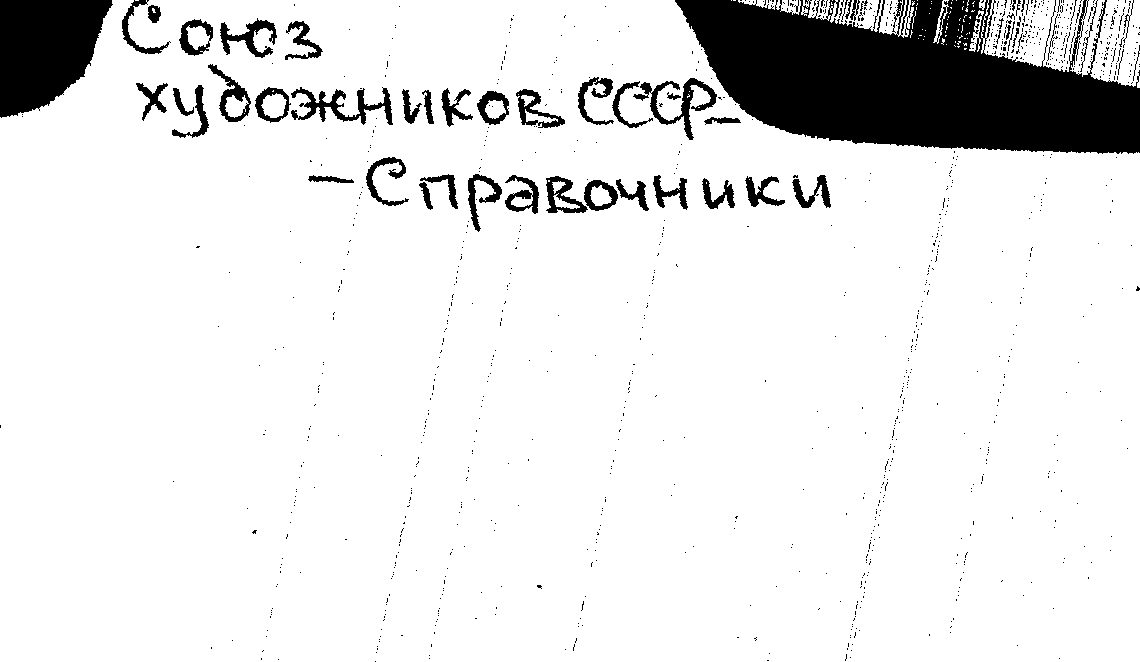 Союз
художников СССР-
- Справочники